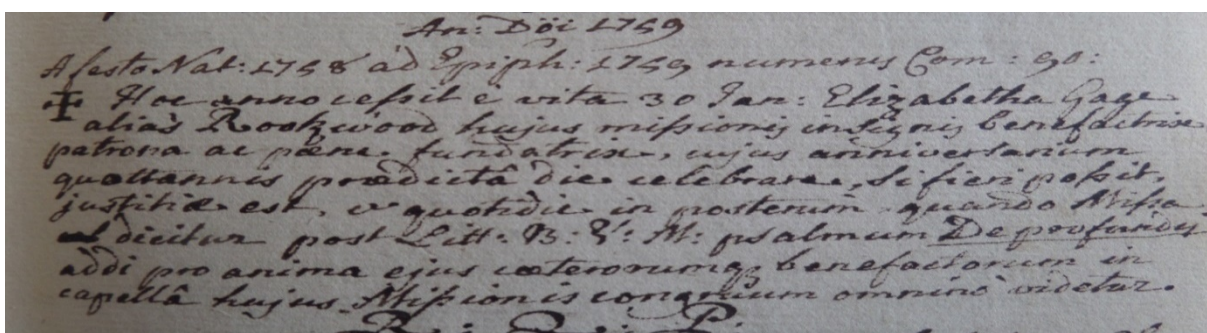 An: Dōi 1759
A festo Nat: 1758 ad Epiph: 1759 numerus Com: 90:
✠ Hoc anno cessit è vita 30 Jan: Elizabetha Gage
alias Rookwood hujus missionis insignis benefactrix
patrona ac pæne fundatrix, cujus anniversarium
quottannis prædictâ die celebrare, si fieri possit,
justitiæ est, & quotidie in posterum quando Missa
dicitur post Litt: B: V: M: psalmum De profundis
addi pro anima ejus cæterorumq benefactorum in
capellâ hujus Missionis congruum omninò videtur.